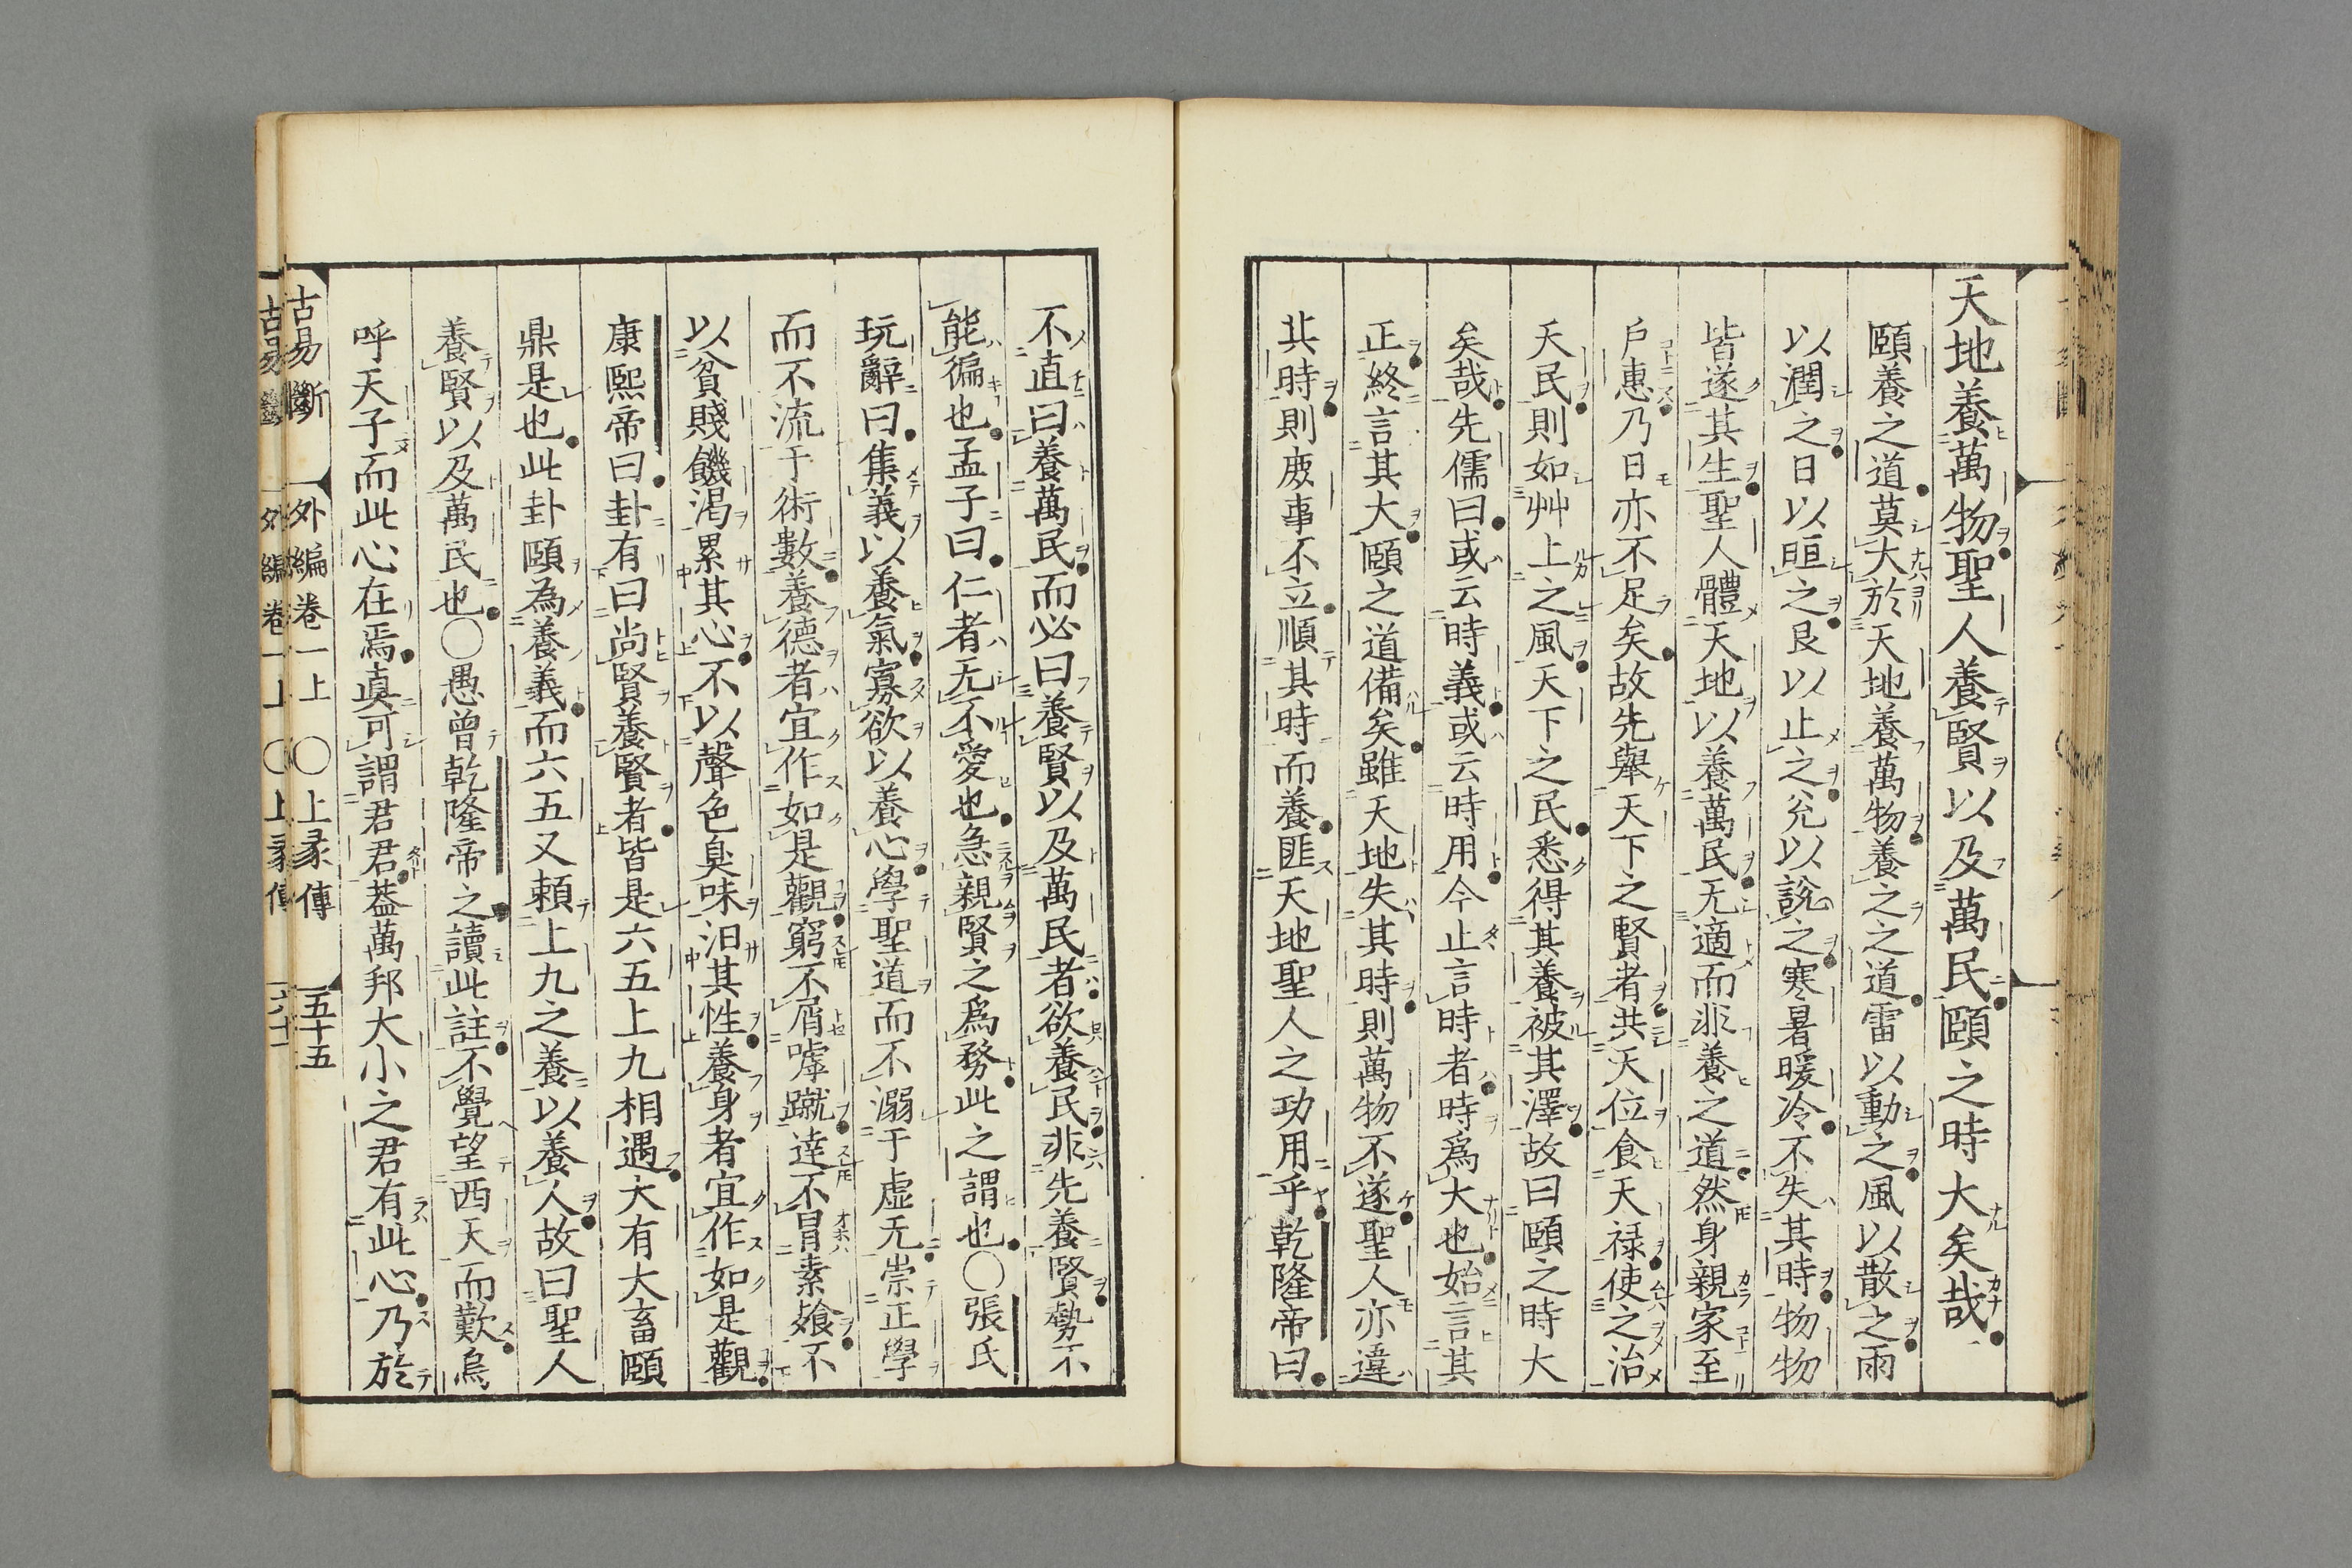 天地養萬物聖人養賢以及萬民頤之時大矣哉
頤養之道莫大於天地養萬物養之之道雷以動之風以散之雨
以潤之日以晅之艮以止之兊以說之寒暑暖冷不失其時物物
皆遂其生聖人體天地以養萬民无適而非養之道然身親家至
戶惠乃日亦不足矣故先舉天下之賢者共天位食天禄使之治
天民則如艸上之風天下之民悉得其養被其澤故曰頤之時大
矣哉先儒曰或云時義或云時用今止言時者時爲大也始言其
正終言其大頤之道備矣雖天地失其時則萬物不遂聖人亦違
其時則庶事不立順其時而養匪天地聖人之功用乎乾隆帝曰
不直曰養萬民而必曰養賢以及萬民者欲養民非先養賢勢不
能徧也孟子曰仁者无不愛也急親賢之爲務此之謂也〇張氏
玩辭曰集義以養氣寡欲以養心學聖道而不溺于虛无崇正學
而不流于術數養德者宜作如是觀窮不屑嘑蹴達不冐素飱不
以貧賤饑渴累其心不以聲色臭味汨其性養身者宜作如是觀
康熙帝曰卦有曰尚賢養賢者皆是六五上九相遇大有大畜頤
鼎是也此卦頤為養義而六五又賴上九之養以養人故曰聖人
養賢以及萬民也〇愚曾乾隆帝之讀此註不覺望西天而歎烏
呼天子而此心在焉真可謂君君葢萬邦大小之君有此心乃於
古易斷 外編卷一上 〇上彖傳 五十五
古易斷 外編卷一上 〇上彖傳 六十一